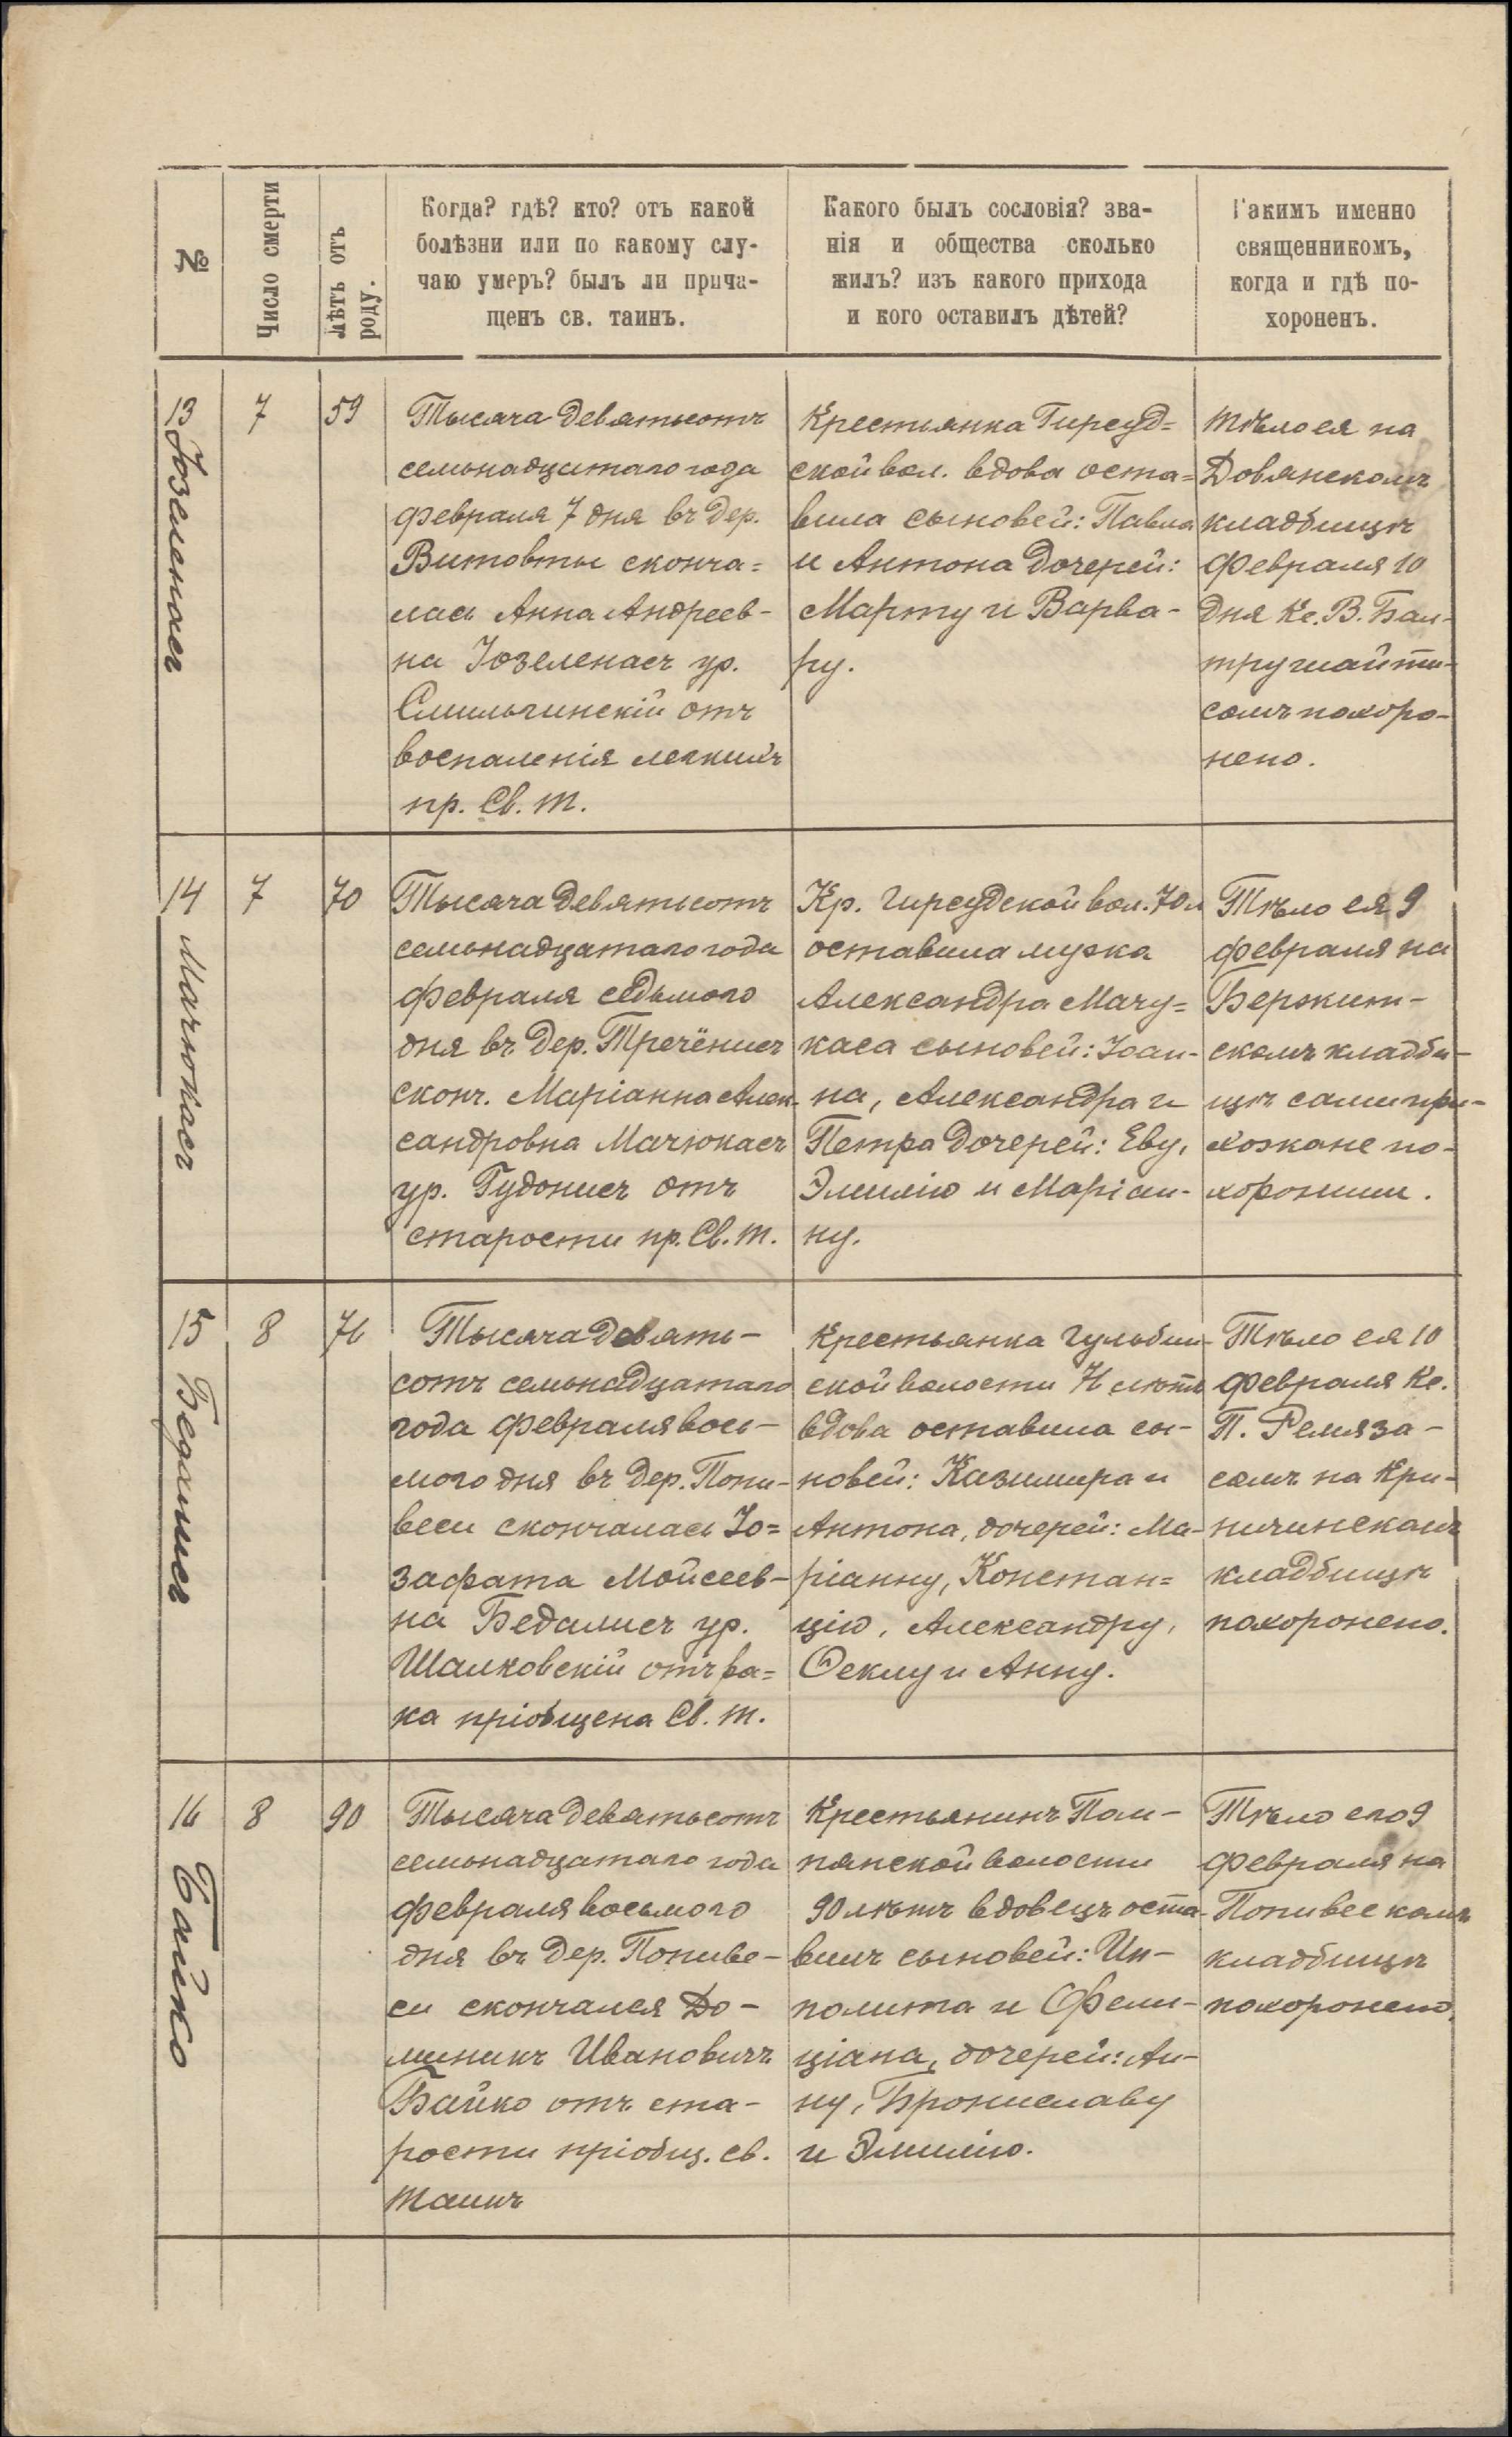 №
Число смерти
лѣтъ отъ
роду.
Когда? гдѣ? кто? отъ какой
болѣзни или по какому слу-
чаю умеръ? былъ ли прича-
щенъ св. таинъ.
Какого былъ сословія? зва-
нія и общества сколько
жилъ? изъ какого прихода
и кого оставилъ дѣтей?
Какимъ именно
священникомъ,
когда и гдѣ по-
хороненъ.
13
Іозеленасъ
7
59
Тысяча девятьсотъ
семьнадцатаго года
февраля 7 дня въ дер.
Витовты сконча=
лась Анна Андреев-
на Іозеленасъ ур.
Смильгинскій отъ
воспаленія легкихъ
пр. Св. Т.
Крестьянка Гирсуд=
ской вол. вдова оста=
вила сыновей: Павла
и Антона дочерей:
Марту и Варва-
ру.
Тѣло ея на
Довянскомъ
кладбищѣ
февраля 10
дня Кс. В. Бал-
трушайти-
сомъ похоро-
нено.
14
Мачюкасъ
7
70
Тысяча девятьсотъ
семьнадцатаго года
февраля седьмого
дня въ дер. Тречёнисъ
сконч. Маріанна Алек-
сандровна Мачюкасъ
ур. Гудонисъ отъ
старости пр. Св. Т.
Кр. Гирсудской вол. 70 л
оставила мужа
Александра Мачу=
каса сыновей: Іоан-
на, Александра и
Петра дочерей: Еву,
Эмилію и Маріан-
ну.
Тѣло ея 9
февраля на
скомъ кладби-
щѣ сами при-
хожане по-
хоронили.
15
Бедалисъ
8
76
Тысяча девять-
сотъ семьнадцатаго
года февраля вось-
мого дня въ дер. Попи-
веси скончалась Іо=
зафата Мойсеев-
на Бедалисъ ур.
Шалковскій отъ ра=
ка пріобщена Св. Т.
Крестьянка Гульбин-
ской волости
вдова оставила сы-
новей: Казимира и
Антона, дочерей: Ма-
ріанну, Констан=
цію, Александру,
Ѳеклу и Анну.
Тѣло ея 10
февраля Кс.
П. Ремяза-
сомъ на Кри-
ничинскомъ
кладбищѣ
похоронено.
16
Байко
8
90
Тысяча девятьсотъ
семьнадцатаго года
февраля восьмого
дня въ дер. Попиве-
си скончался До-
миникъ Ивановичъ
Байко отъ ста-
рости пріобщ. св.
Таинъ
Крестьянинъ Пом-
пянской волости
90 лѣтъ вдовецъ оста-
вилъ сыновей: Ип-
полита и Фели-
ціана, дочерей: Ан-
ну, Брониславу
и Эмилію.
Тѣло его 9
февраля на
Попивескомъ
кладбищѣ
похоронено.